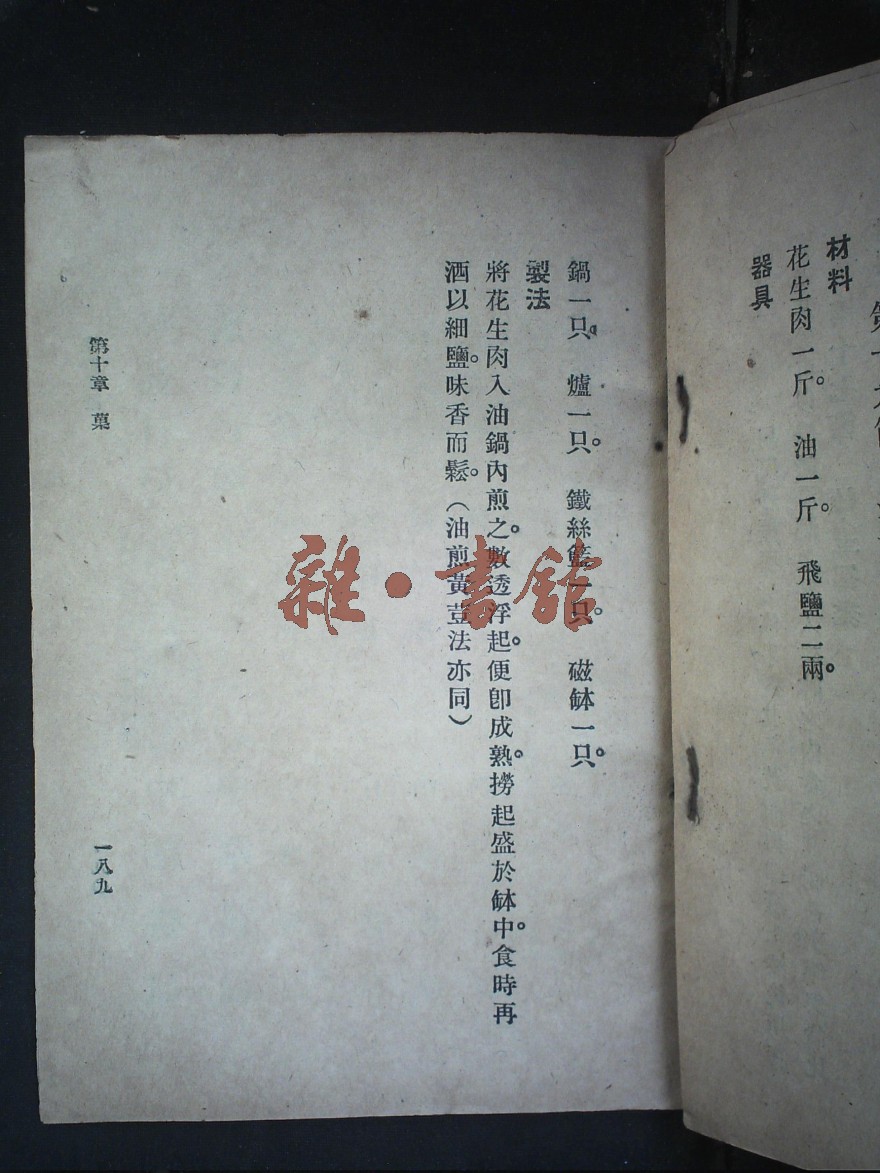 材料
花生肉一斤。　油一斤。　飛鹽二兩。
器具
鍋一只。　爐一只。　鐵絲籃一只。　磁缽一只。
製法
將花生肉入油鍋內煎之。數透浮起。便卽成熟。撈起盛於缽中。食時再
洒以細鹽。味香而鬆。（油煎黃荳法亦同）
第十章　菓
一八九
雜·書館